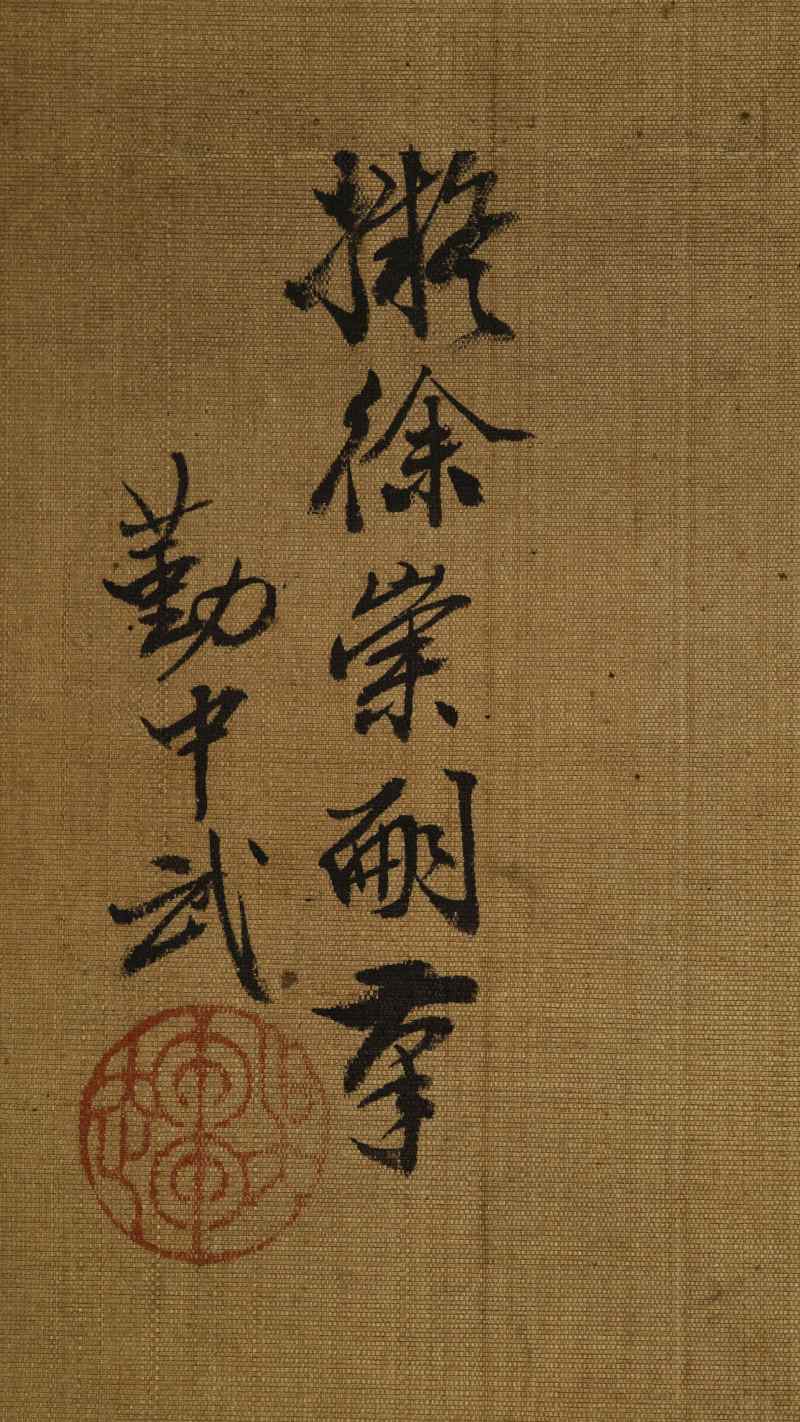 擬徐崇嗣
勤中武